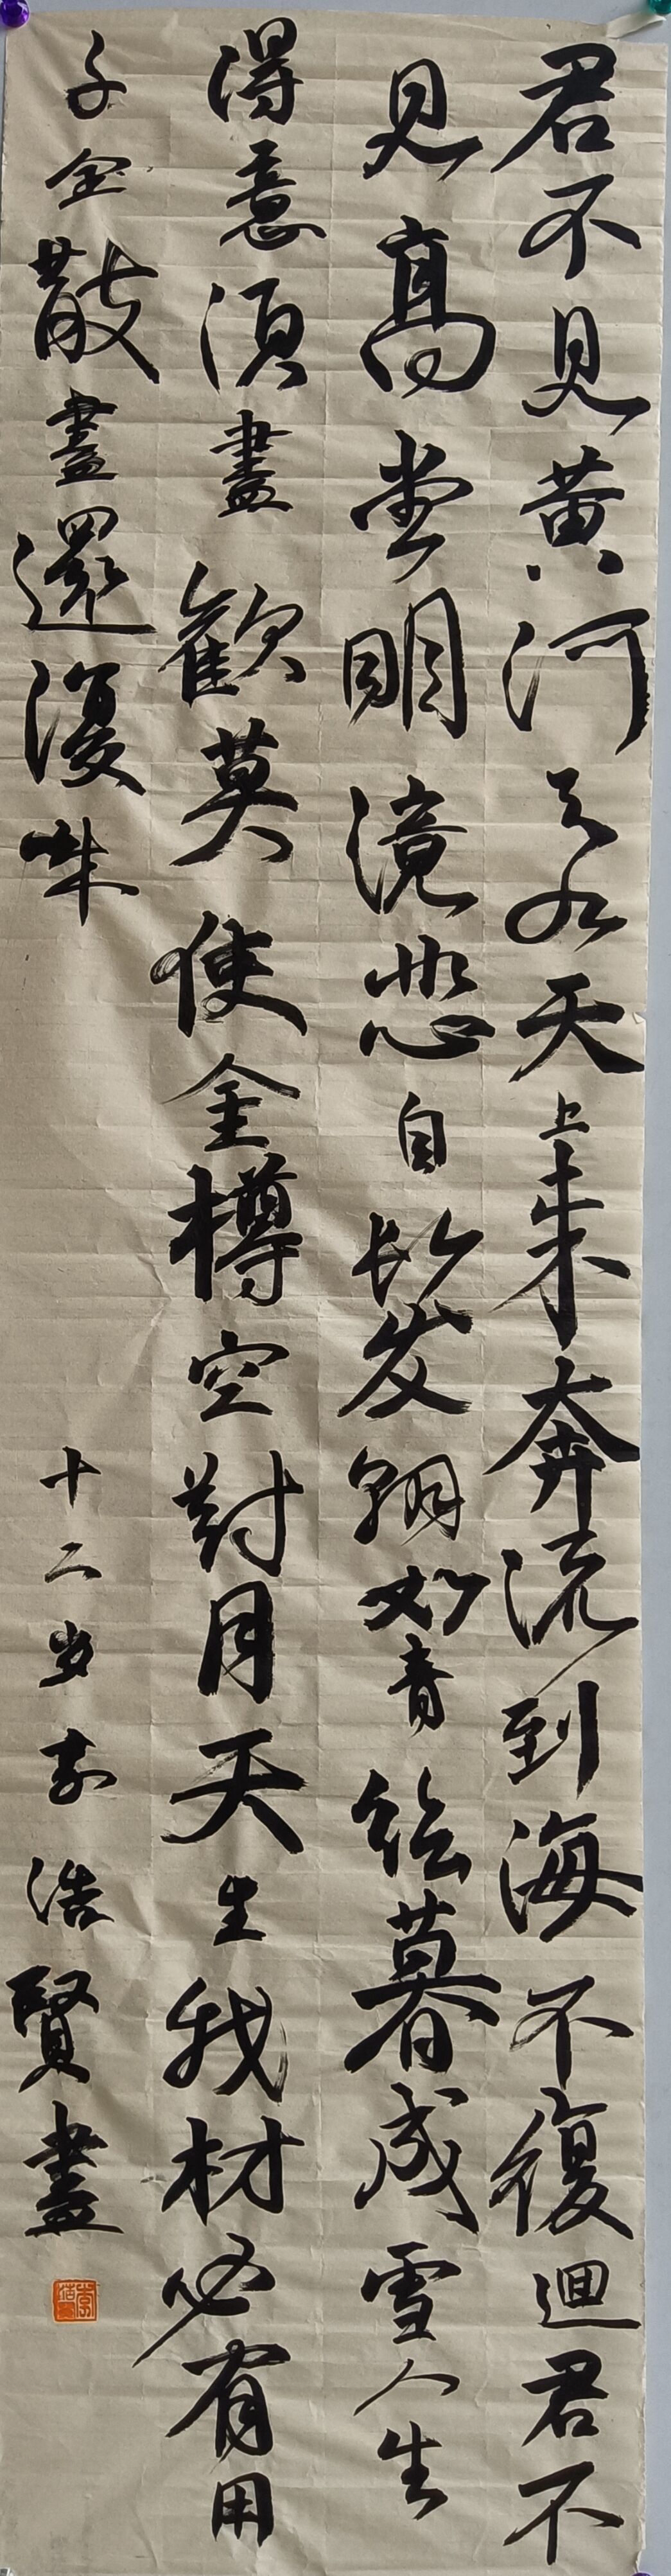 君不見黄河之水天上来奔流到海不復迴君不
見高堂明鏡悲自髮朝如青絲暮成雪人生
得意須盡歡莫使金樽空對月天生我材必有用
千金散盡還復来
十二岁李浩賢盡